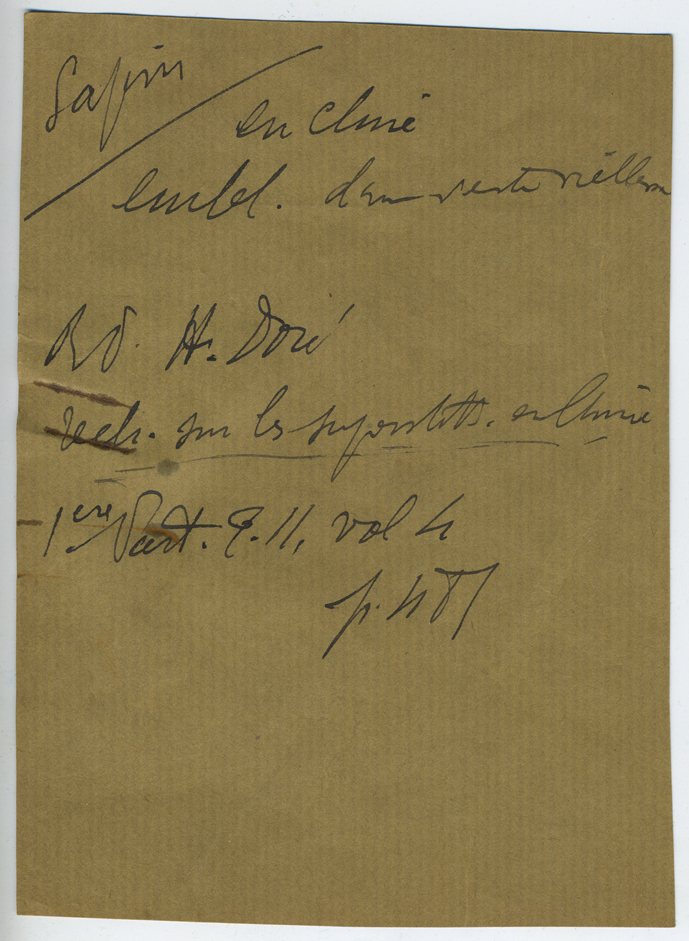 Sapin
en Chine
embl. d'une verte vieillesse
R.P. H. Doré
Rech. sur les superstitt. en Chine
1ère Part. T. II, vol 4